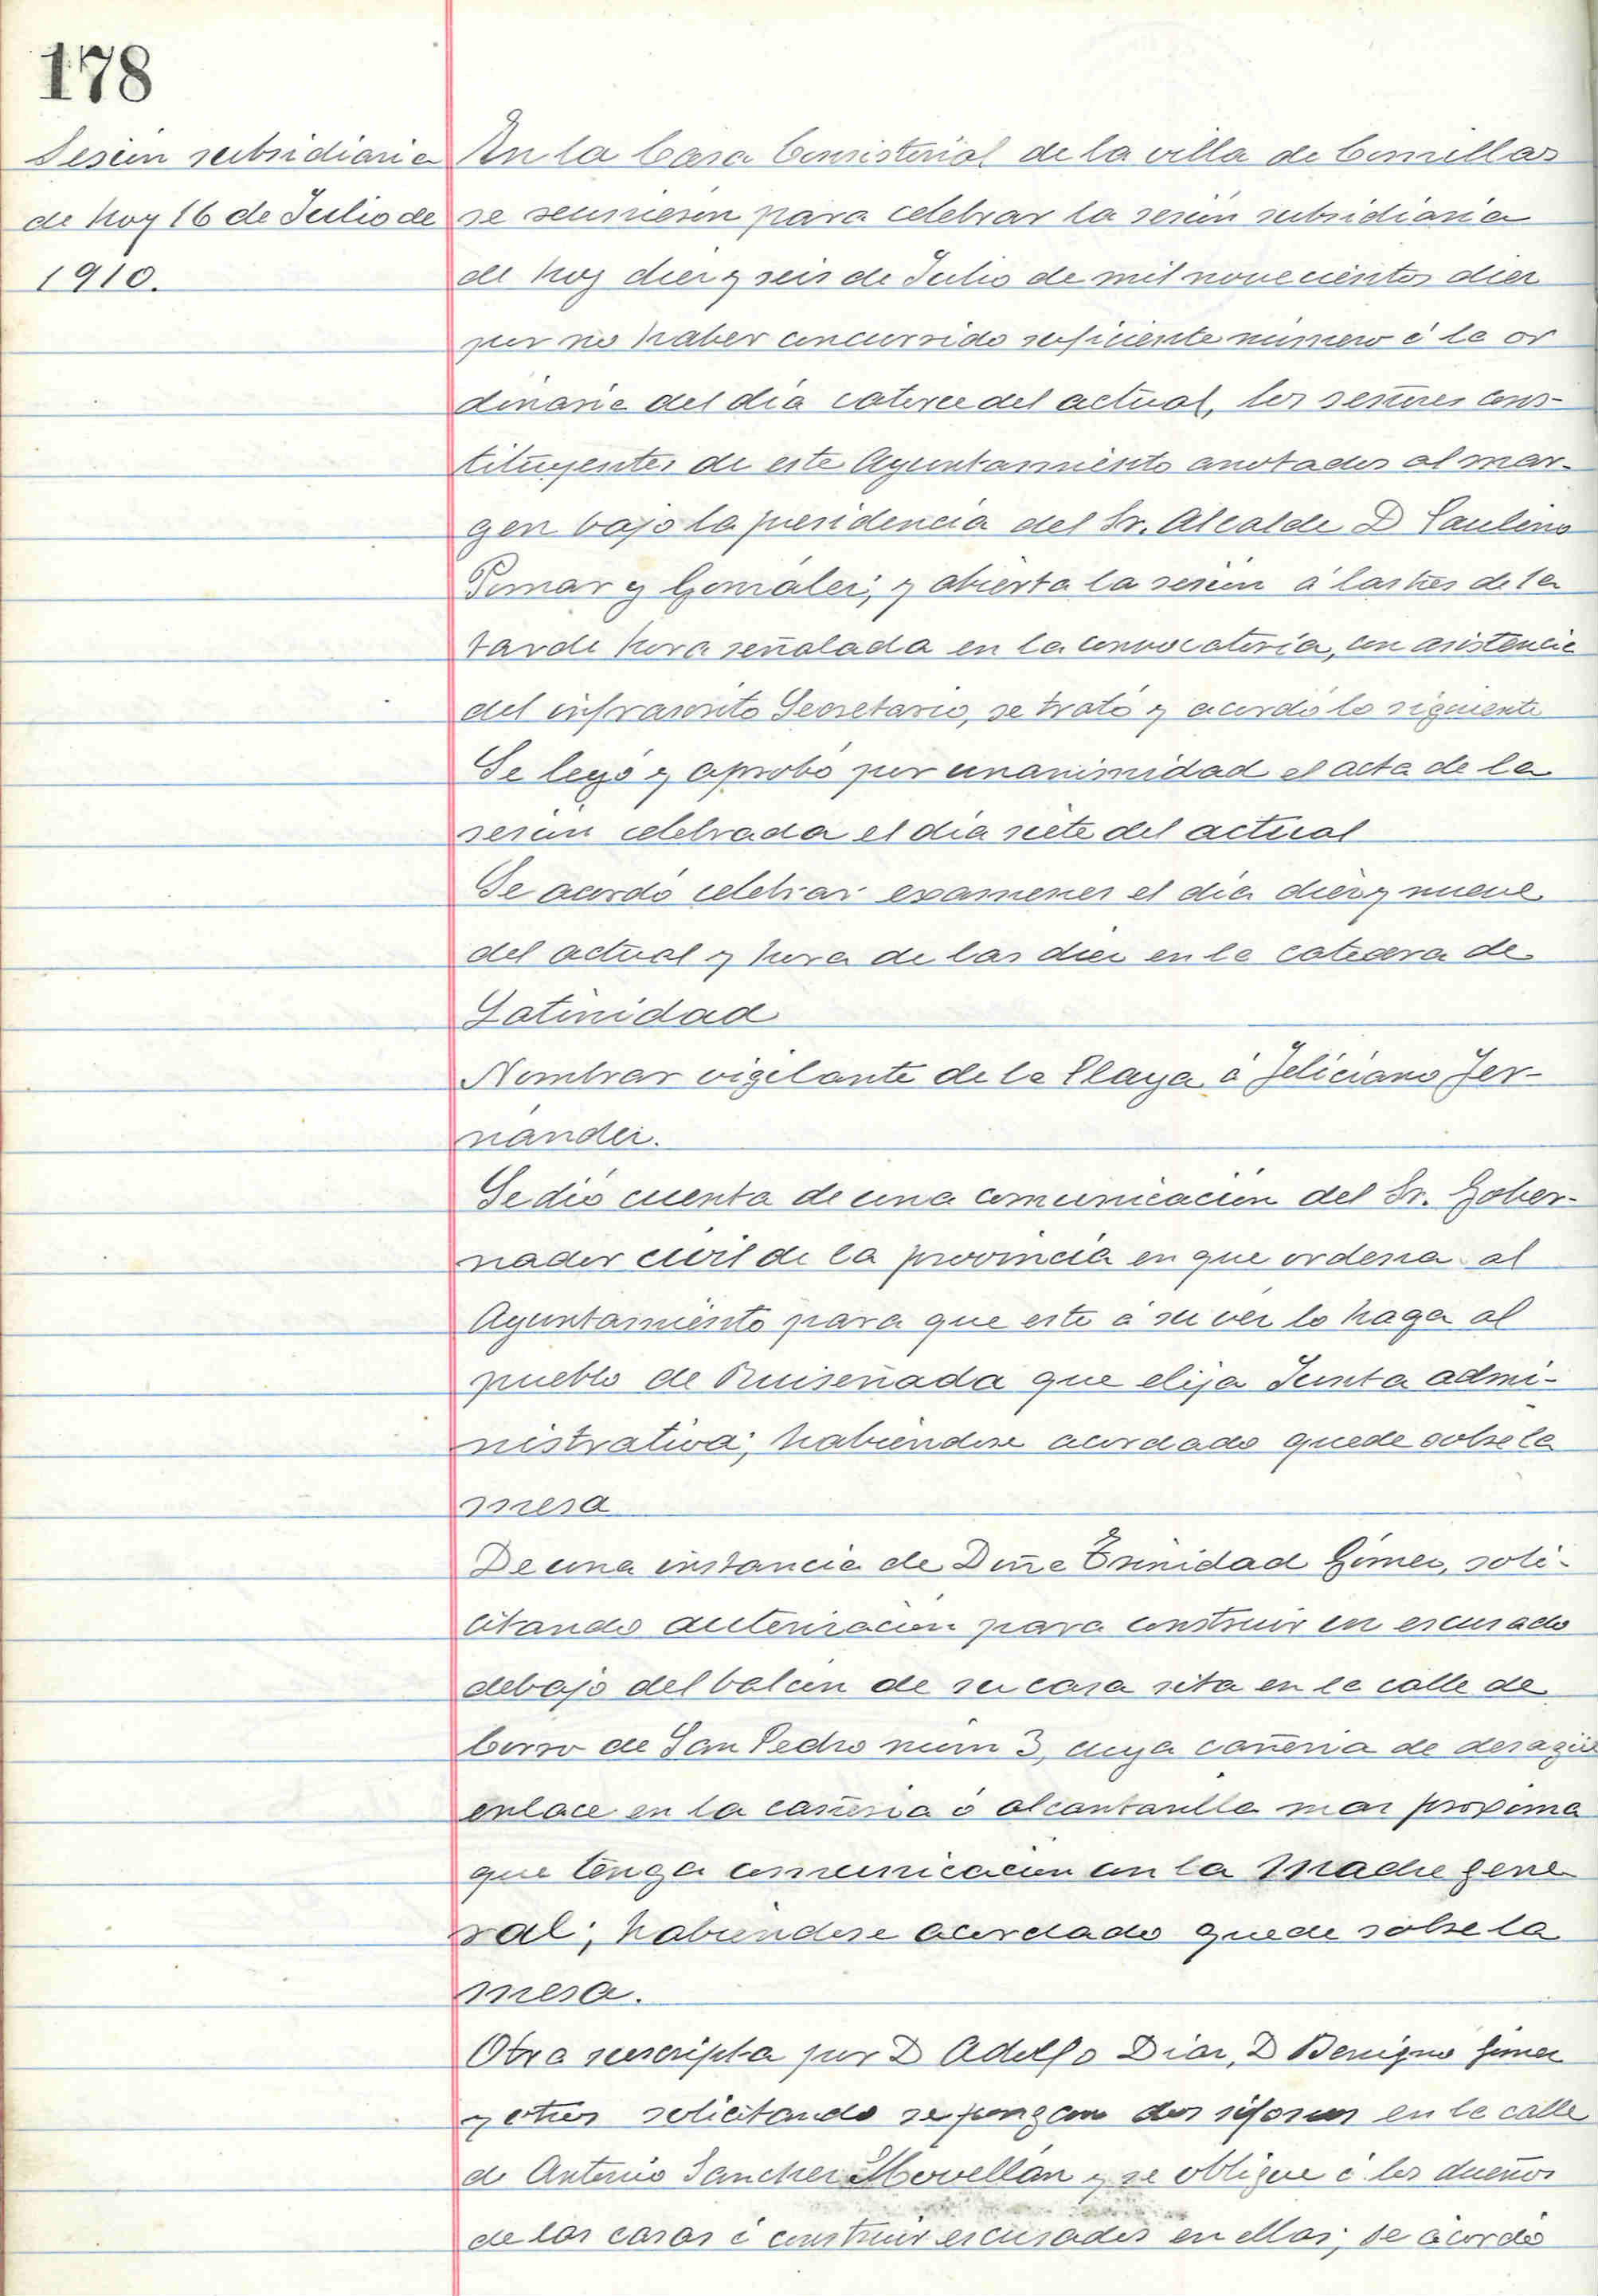 178
Sesión subsidiaria
de hoy 16 de Julio de
1910.
En la Casa Consistorial de la villa de Comillas
se reunieron para celebrar la sesión subsidiaria
de hoy diez y seis de Julio de mil novecientos diez
por no haber concurrido suficiente número á la or
dinaria del día catorce del actual, los señores cons-
tituyentes de este Ayuntamiento anotados al mar-
gen bajo la presidencia del Sr. Alcalde D Paulino
Pomar y González; y abierta la sesión á las tres de la
tarde hora señalada en la convocatoria, con asistencia
del infrascrito Secretario, se trató y acordó lo siguiente
Se leyó y aprobó por unanimidad el acta de la
sesión celebrada el día siete del actual
Se acordó celebrar examenes el día diez y nueve
del actual y hora de las diez en la catedra de
Latinidad
Nombrar vigilante de la Playa á Feliciano Fer-
nández.
Se dió cuenta de una comunicación del Sr. Gober-
nador civil de la provincia en que ordena al
Ayuntamiento para que este á su vez lo haga al
pueblo de Ruiseñada que elija Junta admi-
nistrativa; habiendose acordado quede sobre la
mesa
De una instancia de Doña Trinidad Gómez, soli-
citando autorización para construir un escusado
debajo del balcón de su casa sita en la calle de
Corro de San Pedro núm 3, cuya cañería de desagüe
enlace en la cañería ó alcantarilla mas proxima
que tenga comunicación con la Madre gene
ral; habiendose acordado quede sobre la
mesa.
Otra suscripta por D Adolfo Díaz, D Benigno Gómez
y otros solicitando se pongan dos sifones en la calle
de Antonio Sanchez Movellán y se obligue á los dueños
de las casas á construir escusados en ellas; se acordó